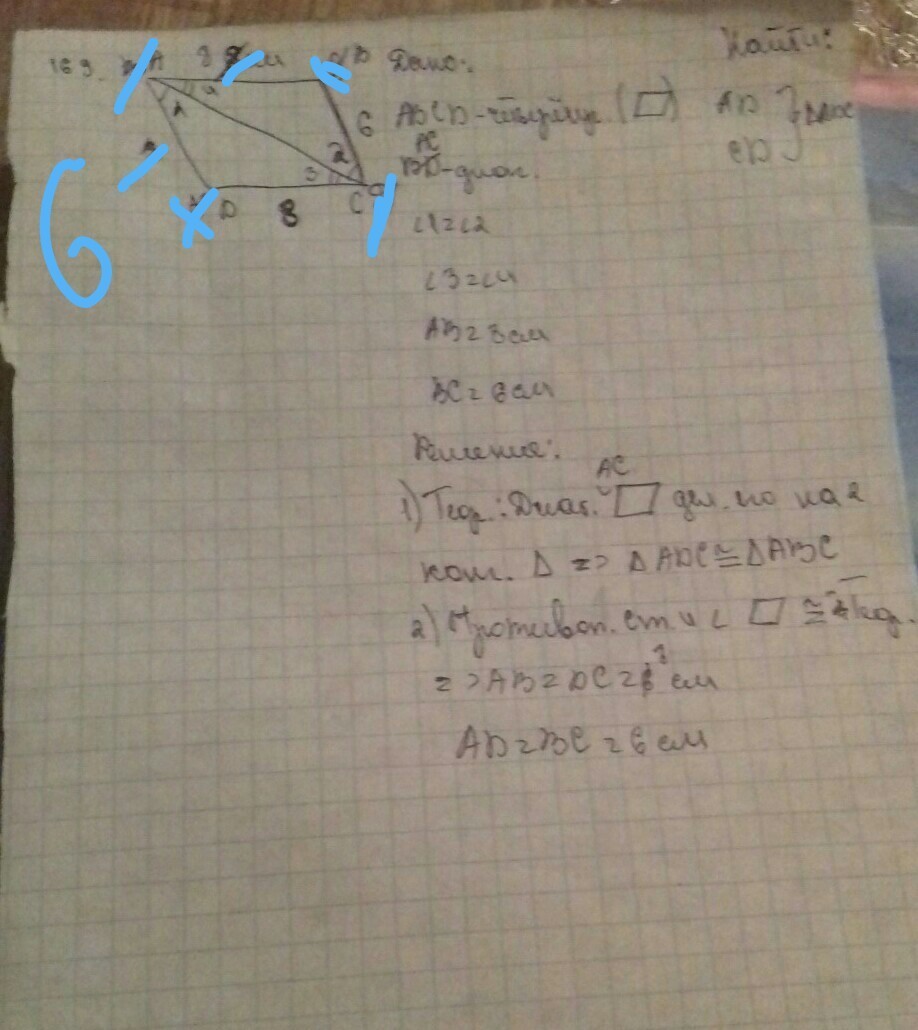 169. A 8 см B Дано: Найти:
ABCD-четырёхуг. (▱) AD
6 AC CD
BD-диаг.
1 4 2 3
6
D 8 C
∠1=∠2
∠3=∠4
AB=8см
BC=6см
Решение:
AC
1) Теор.: Диаг. ▱ дел. его на 2
кон. Δ => Δ ADC≅ΔABC
2) Противоп. ст и ∠ ▱ ≅
=>AB=DC=8 см
AD=BC=6 см